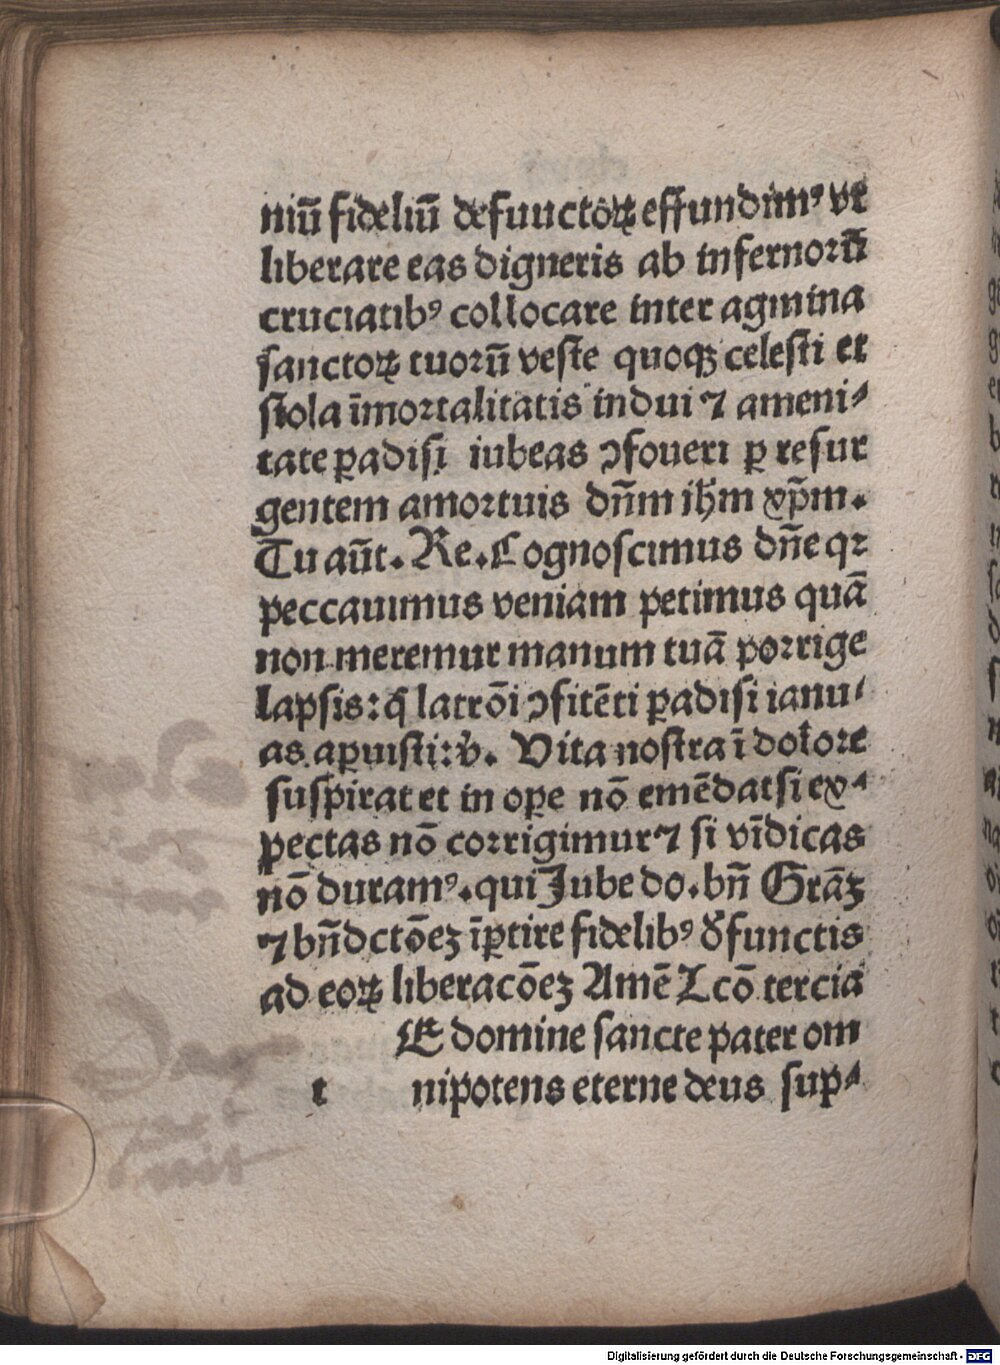 niū fideliū defunctoꝝ effundimꝰ vt
liberare eas digneris ab infernorū
cruciatibꝰ collocare inter agmina
sanctoꝝ tuorū veste quoqꝫ celesti et
stola īmortalitatis indui ⁊ ameni⸗
tate ꝑadisi iubeas ↄfoueri ꝑ resur
gentem amortuis dn̄m ihm̄ xp̄m.
Tu aūt. Re. Cognoscimus dn̄e qꝛ
peccauimus veniam petimus quā
non meremur manum tuā porrige
lapsis: q̄ latrōi ↄfitēti ꝑadisi ianu⸗
as aꝑuisti: v̓. Vita nostra ī dolore
suspirat et in oꝑe nō emēdat si ex⸗
pectas nō corrigimur ⁊ si vīdicas
nō duramꝰ. qui Jube do. bn̄ Grāꝫ
⁊ bn̄dctōeꝫ īꝑtire fidelibꝰ d̓functis
ad eoꝝ liberacōeꝫ Amē Lcō tercia
E domine sancte pater om
t nipotens eterne deus sup⸗
Digitalisierung gefördert durch die Deutsche Forschungsgemeinschaft - DFG